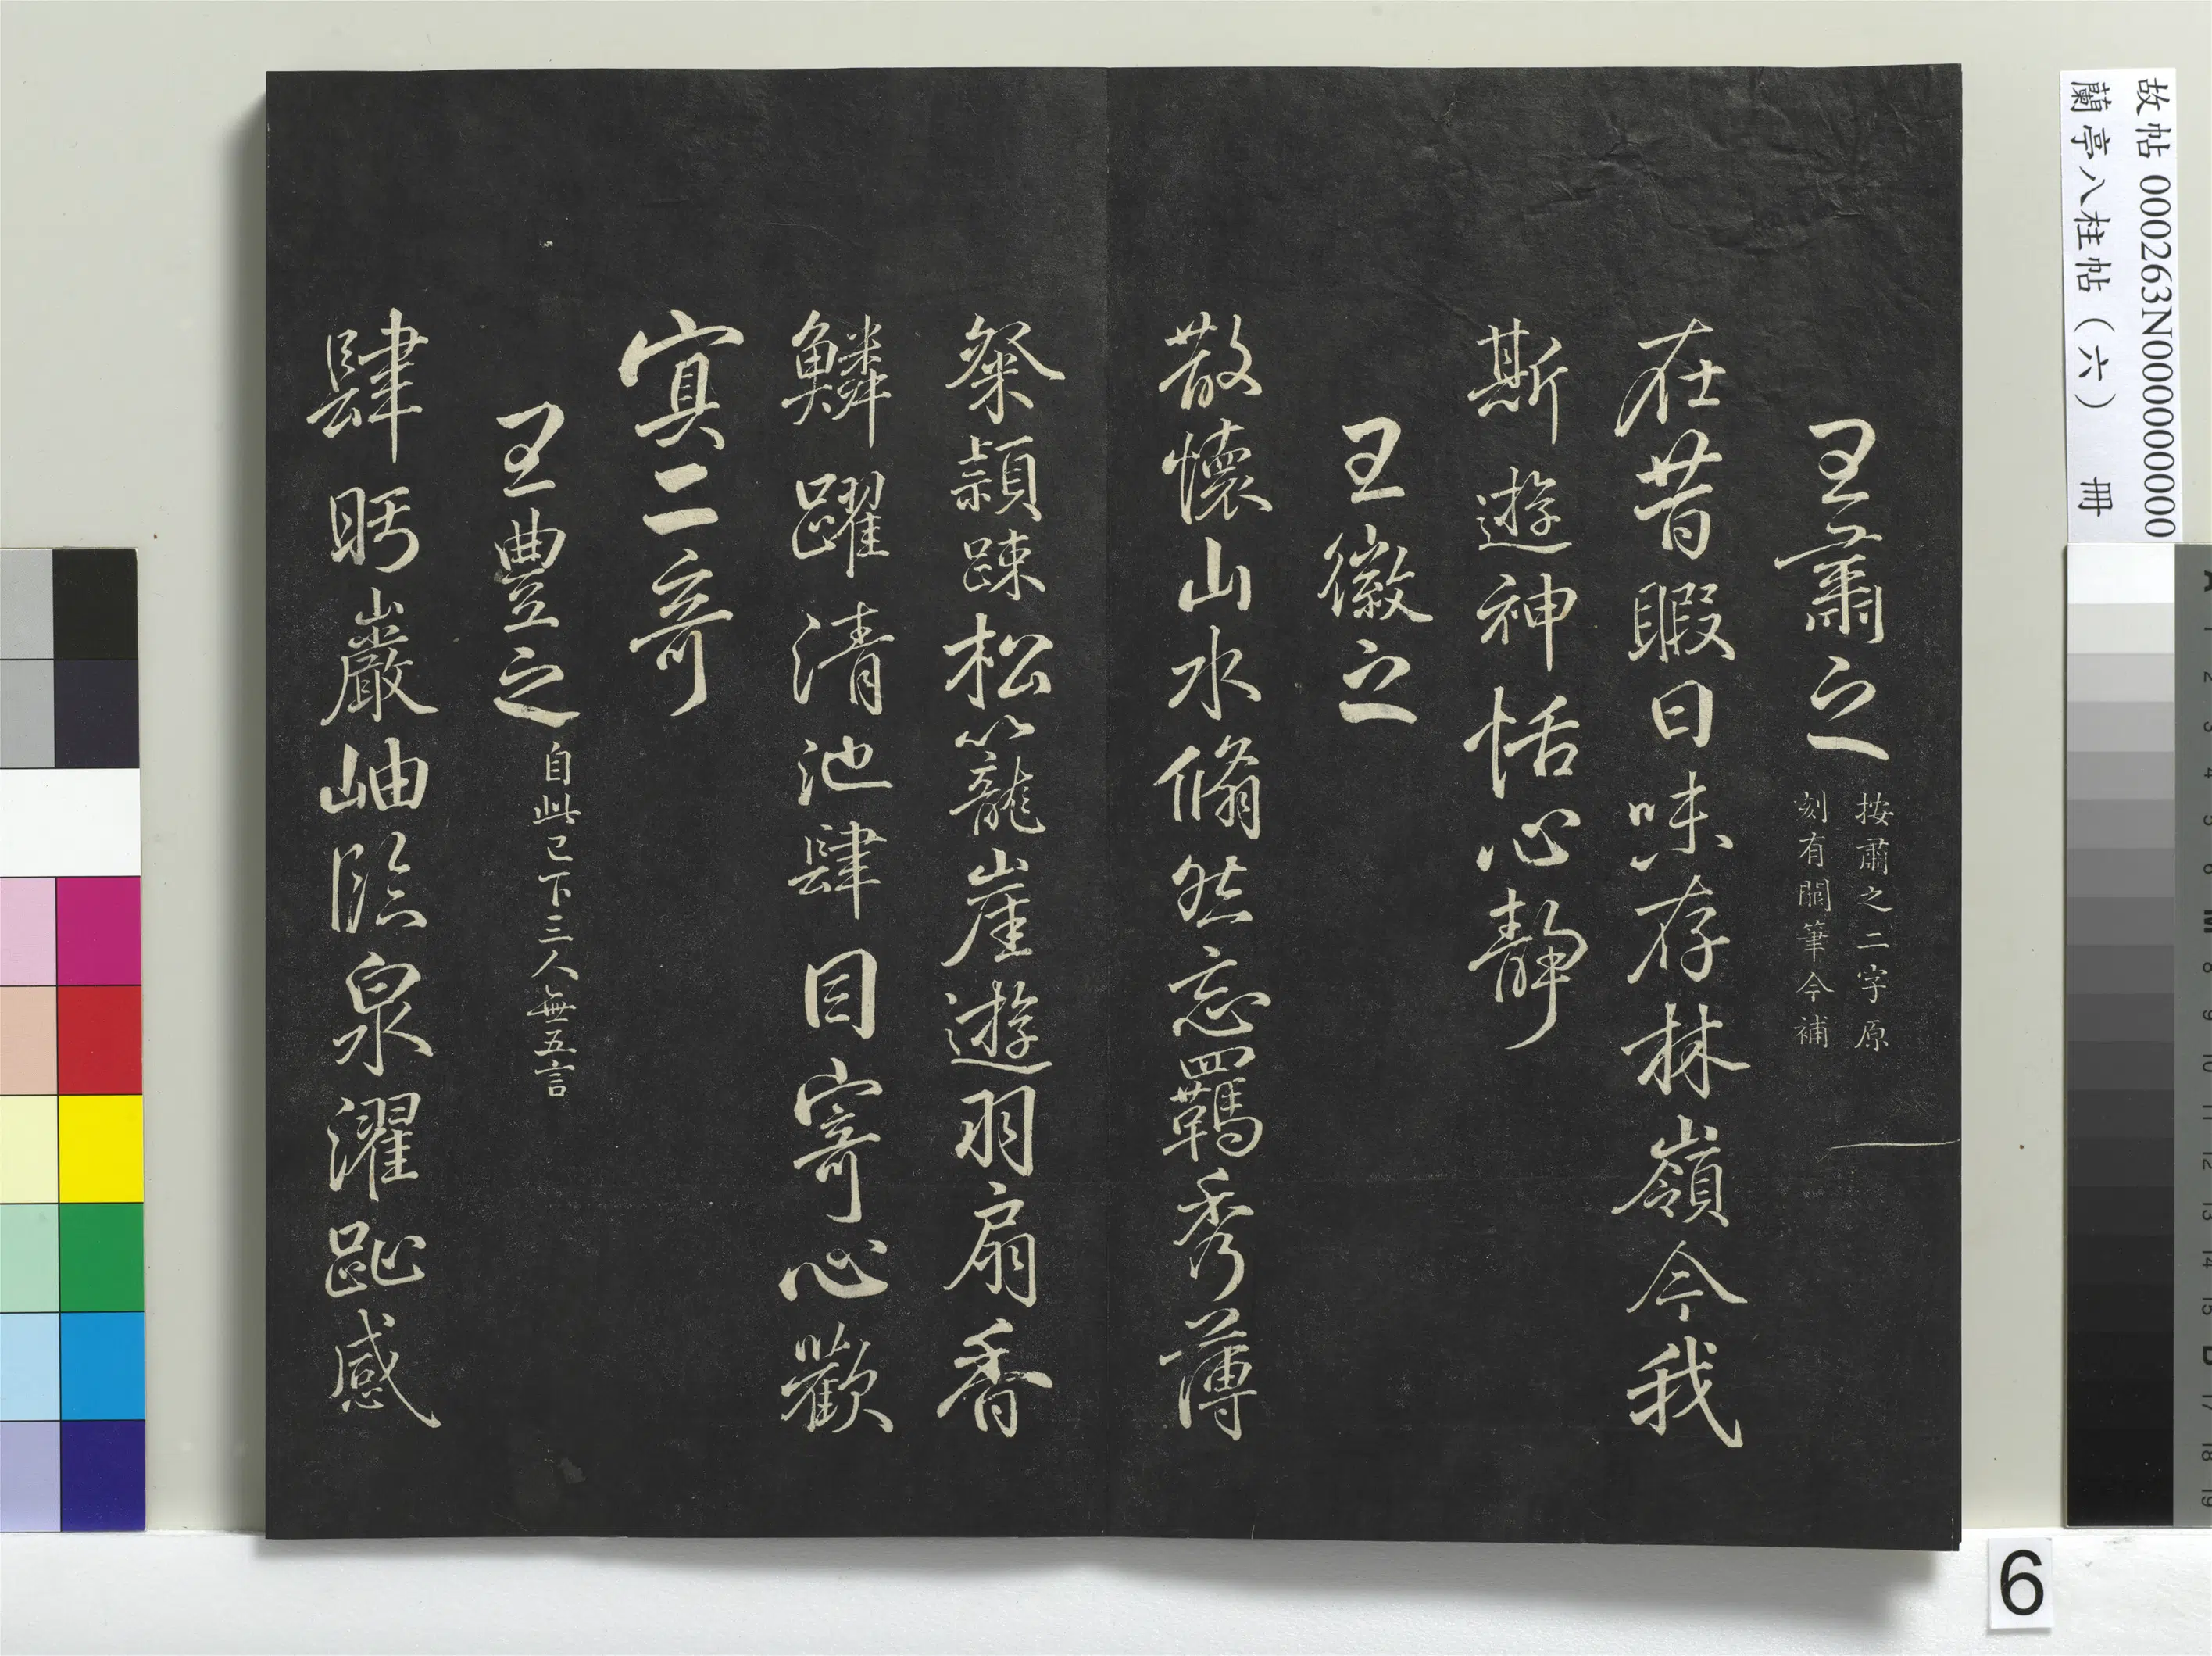 故帖 000263N000000000
蘭亭八柱帖（六） 冊
王肅之
按肅之二字原
刻有闕筆今補
在昔暇日味存林嶺今我
斯遊神恬心靜
王徽之
散懷山水翛然忘羈秀薄
粲穎踈松籠崖遊羽扇香
鱗躍清池肆目寄心歡
寘二奇
王豐之
自此已下三人無五言
肆眄巖岫臨泉濯趾感
6